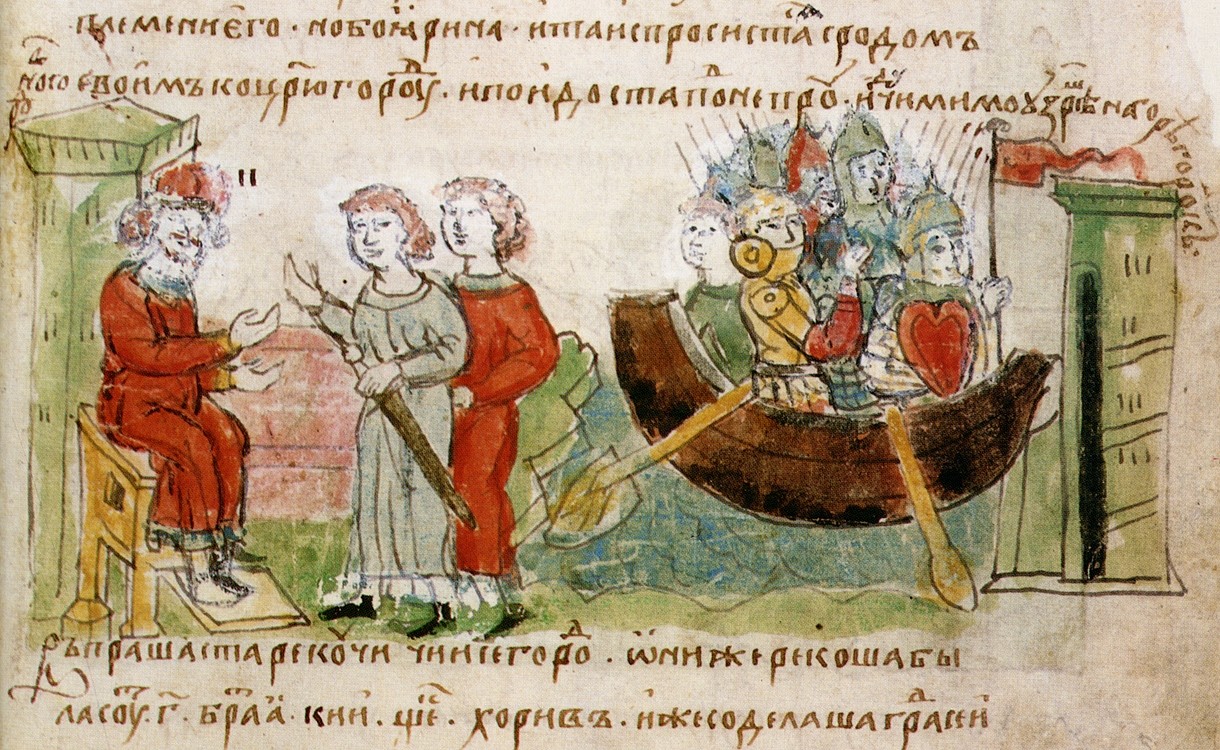 племени єго · но боярина · и та испросистасѧ с родомъ
своимъ ко цр҃югороⷣу · и поидоста по непроⷣ · идꙋчи мимо узрѣста на горѣ городокъ
въпрашаста рекоучи чии се гороⷣ · ѡни же рекоша бы
ла соуⷮ · г҃ · браⷮа · кии · щеⷦ · хоривъ · иже соделаша граⷣ сеи